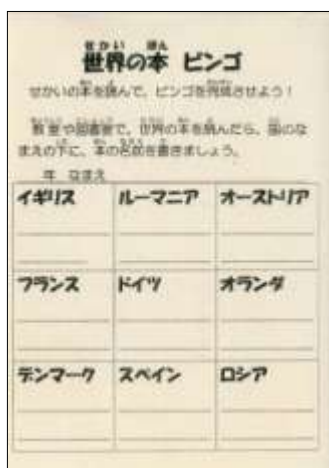 せかい ほん
世界の本 ビンゴ
せかいの本を読んで、ビンゴを完成させよう！
教室や図書室で、世界の本を読んだら、国のな
まえの下に、本の名前を書きましょう。
年 なまえ
イギリス ルーマニア オーストリア
フランス ドイツ オランダ
デンマーク スペイン ロシア